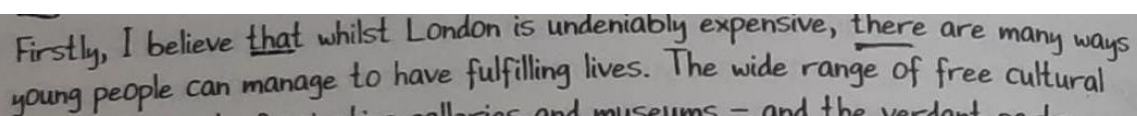 Firstly, I believe that whilst London is undeniably expensive, there are many ways
young people can manage to have fulfilling lives. The wide range of free cultural
galleries and museums – and the verdant